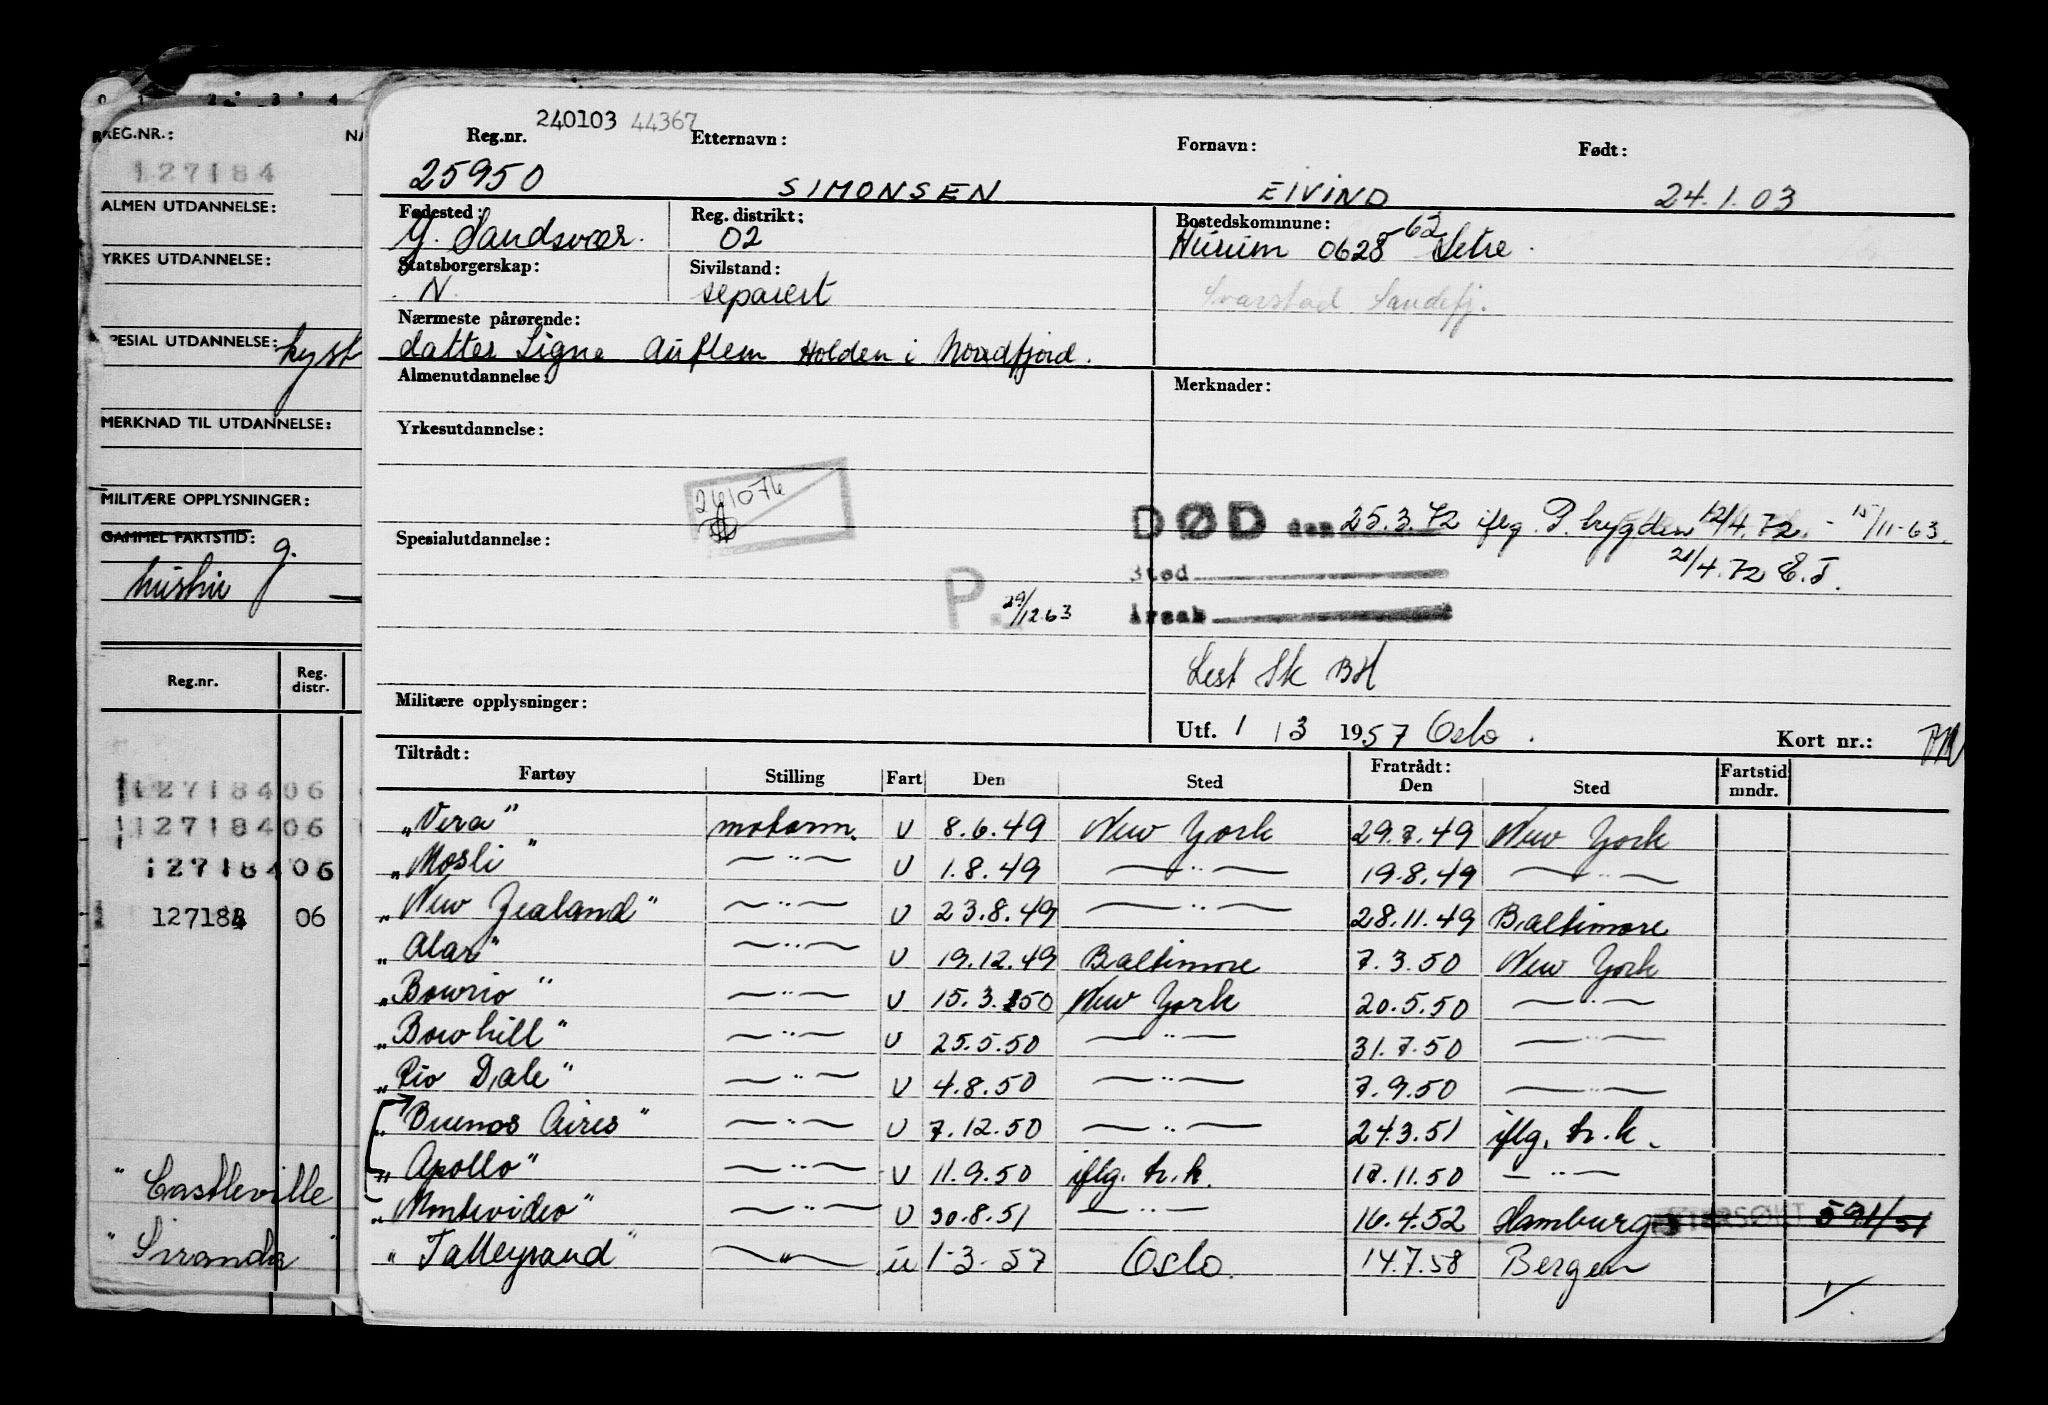 0 1 2 3 4
REG.NR.: NA
127184
ALMEN UTDANNELSE:
YRKES UTDANNELSE:
SPESIAL UTDANNELSE: kyst
MERKNAD TIL UTDANNELSE:
MILITÆRE OPPLYSNINGER:
GAMMEL FARTSTID: g.
Reg.nr. Reg. distr.
127184 06
127184 06
127184 06
127184 06
"Castleville
"Siranda"
240103 44367
Reg.nr. Etternavn: Fornavn: Født:
25950 SIMONSEN EIVIND 24.1.03
Fødested: Reg. distrikt: Bostedskommune:
Y. Sandsvær. 02 Hurum 0628 -62 Setre.
Statsborgerskap: Sivilstand:
N. separert Svarstad Sandefj.
Nærmeste pårørende:
datter Signe Auflem Holden i Nordfjord.
Almenutdannelse: Merknader:
Yrkesutdannelse:
261076
DØD den 25.3.72 iflg. P. trygden 12/4.72. - 15/11-63.
Spesialutdannelse:
21/4.72 E.T.
Sted
P. 29/12.63
Årsak
Lest Sk BH
Militære opplysninger:
Utf. 1 / 3 1957 Oslo. Kort nr.:
Tiltrådt: Fratrådt:
Fartøy Stilling Fart Den Sted Den Sted Fartstid mndr.
"Vera" motorm. U 8.6.49 New York 29.7.49 New York
"Mosli" —"— U 1.8.49 —"— 19.8.49 —"—
"New Zealand" —"— U 23.8.49 —"— 28.11.49 Baltimore
"Alar" —"— U 19.12.49 Baltimore 7.3.50 New York
"Bowrio" —"— U 15.3.50 New York 20.5.50 —"—
"Bowhill" —"— U 25.5.50 —"— 31.7.50 —"—
"Rio Dale" —"— U 4.8.50 —"— 7.9.50 —"—
"Buenos Aires" —"— U 7.12.50 —"— 24.3.51 iflg. tr.k.
"Apollo" —"— U 11.9.50 iflg. tr.k. 17.11.50 —"—
"Montevideo" —"— U 30.8.51 —"— 16.4.52 Hamburg ETTERSØKT 591/51
"Talleyrand" —"— u 1-3-57 Oslo. 14.7.58 Bergen